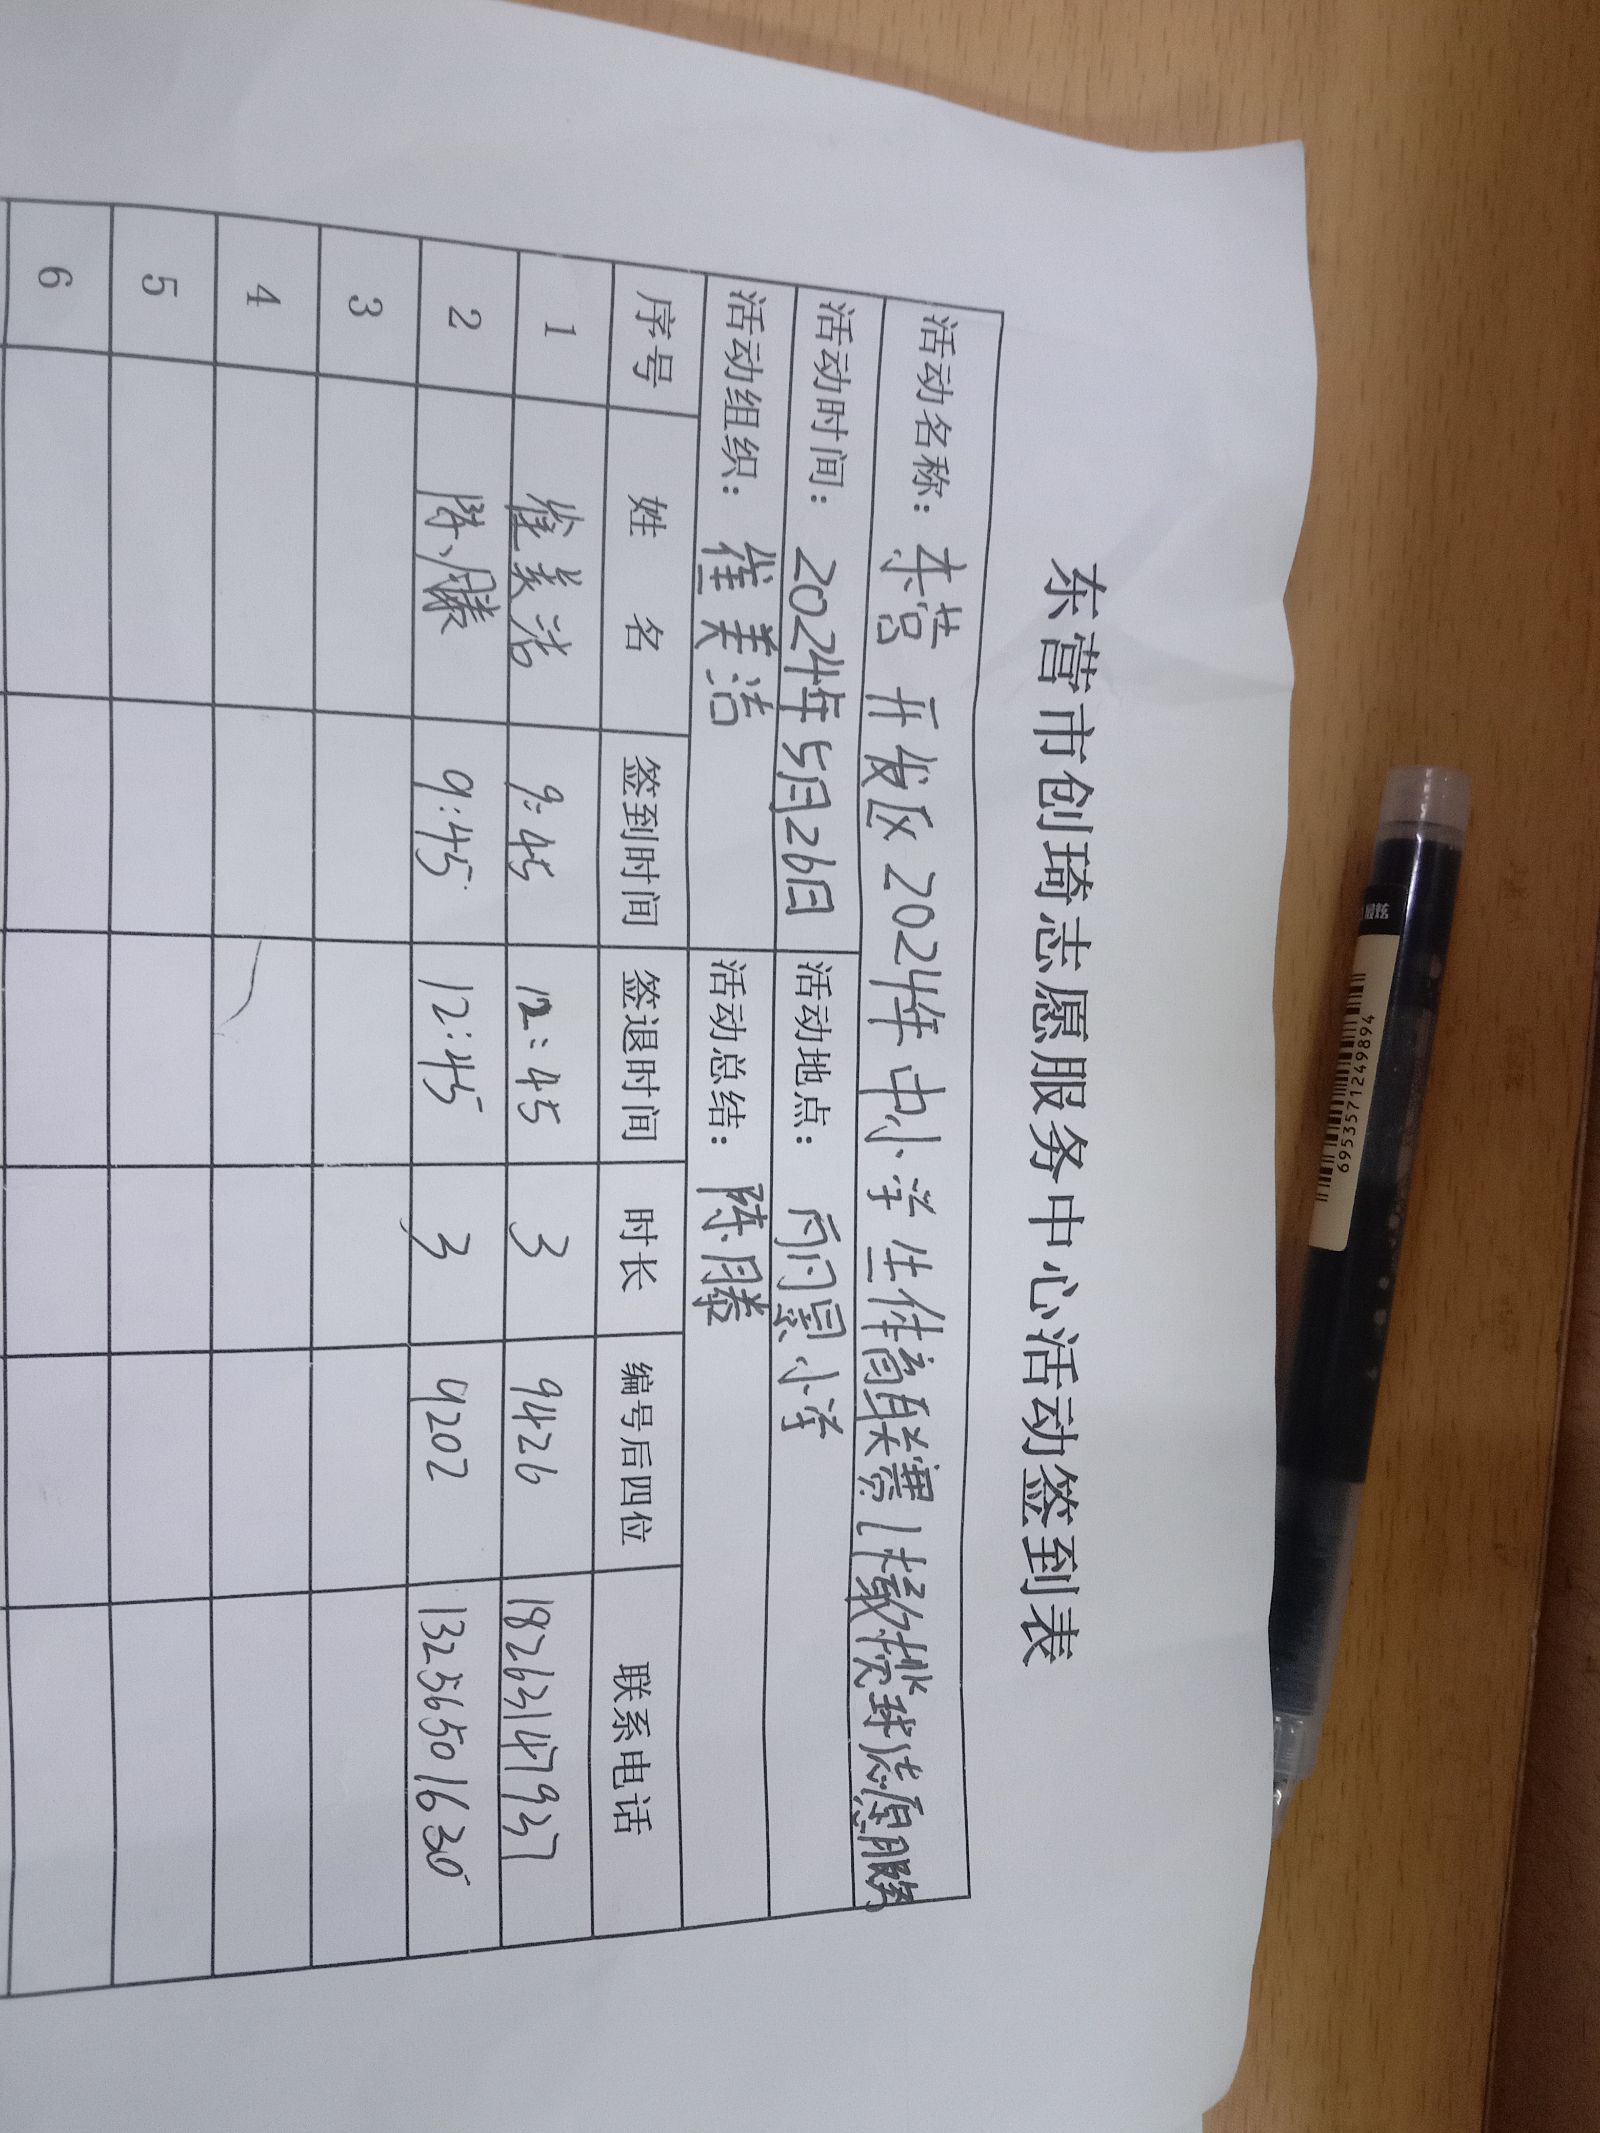 东营市创琦志愿服务中心活动签到表
活动名称：东营开发区2024年中小学生体育联赛(橄榄球志愿服务
活动时间：2024年5月26日 活动地点：雨景小学
活动组织：崔美洁 活动总结：陈滕
序号 姓名 签到时间 签退时间 时长 编号后四位 联系电话
1 崔美洁 9:45 12:45 3 9426 18263147937
2 陈滕 9:45 12:45 3 4202
3
4
5
6
6953571249894